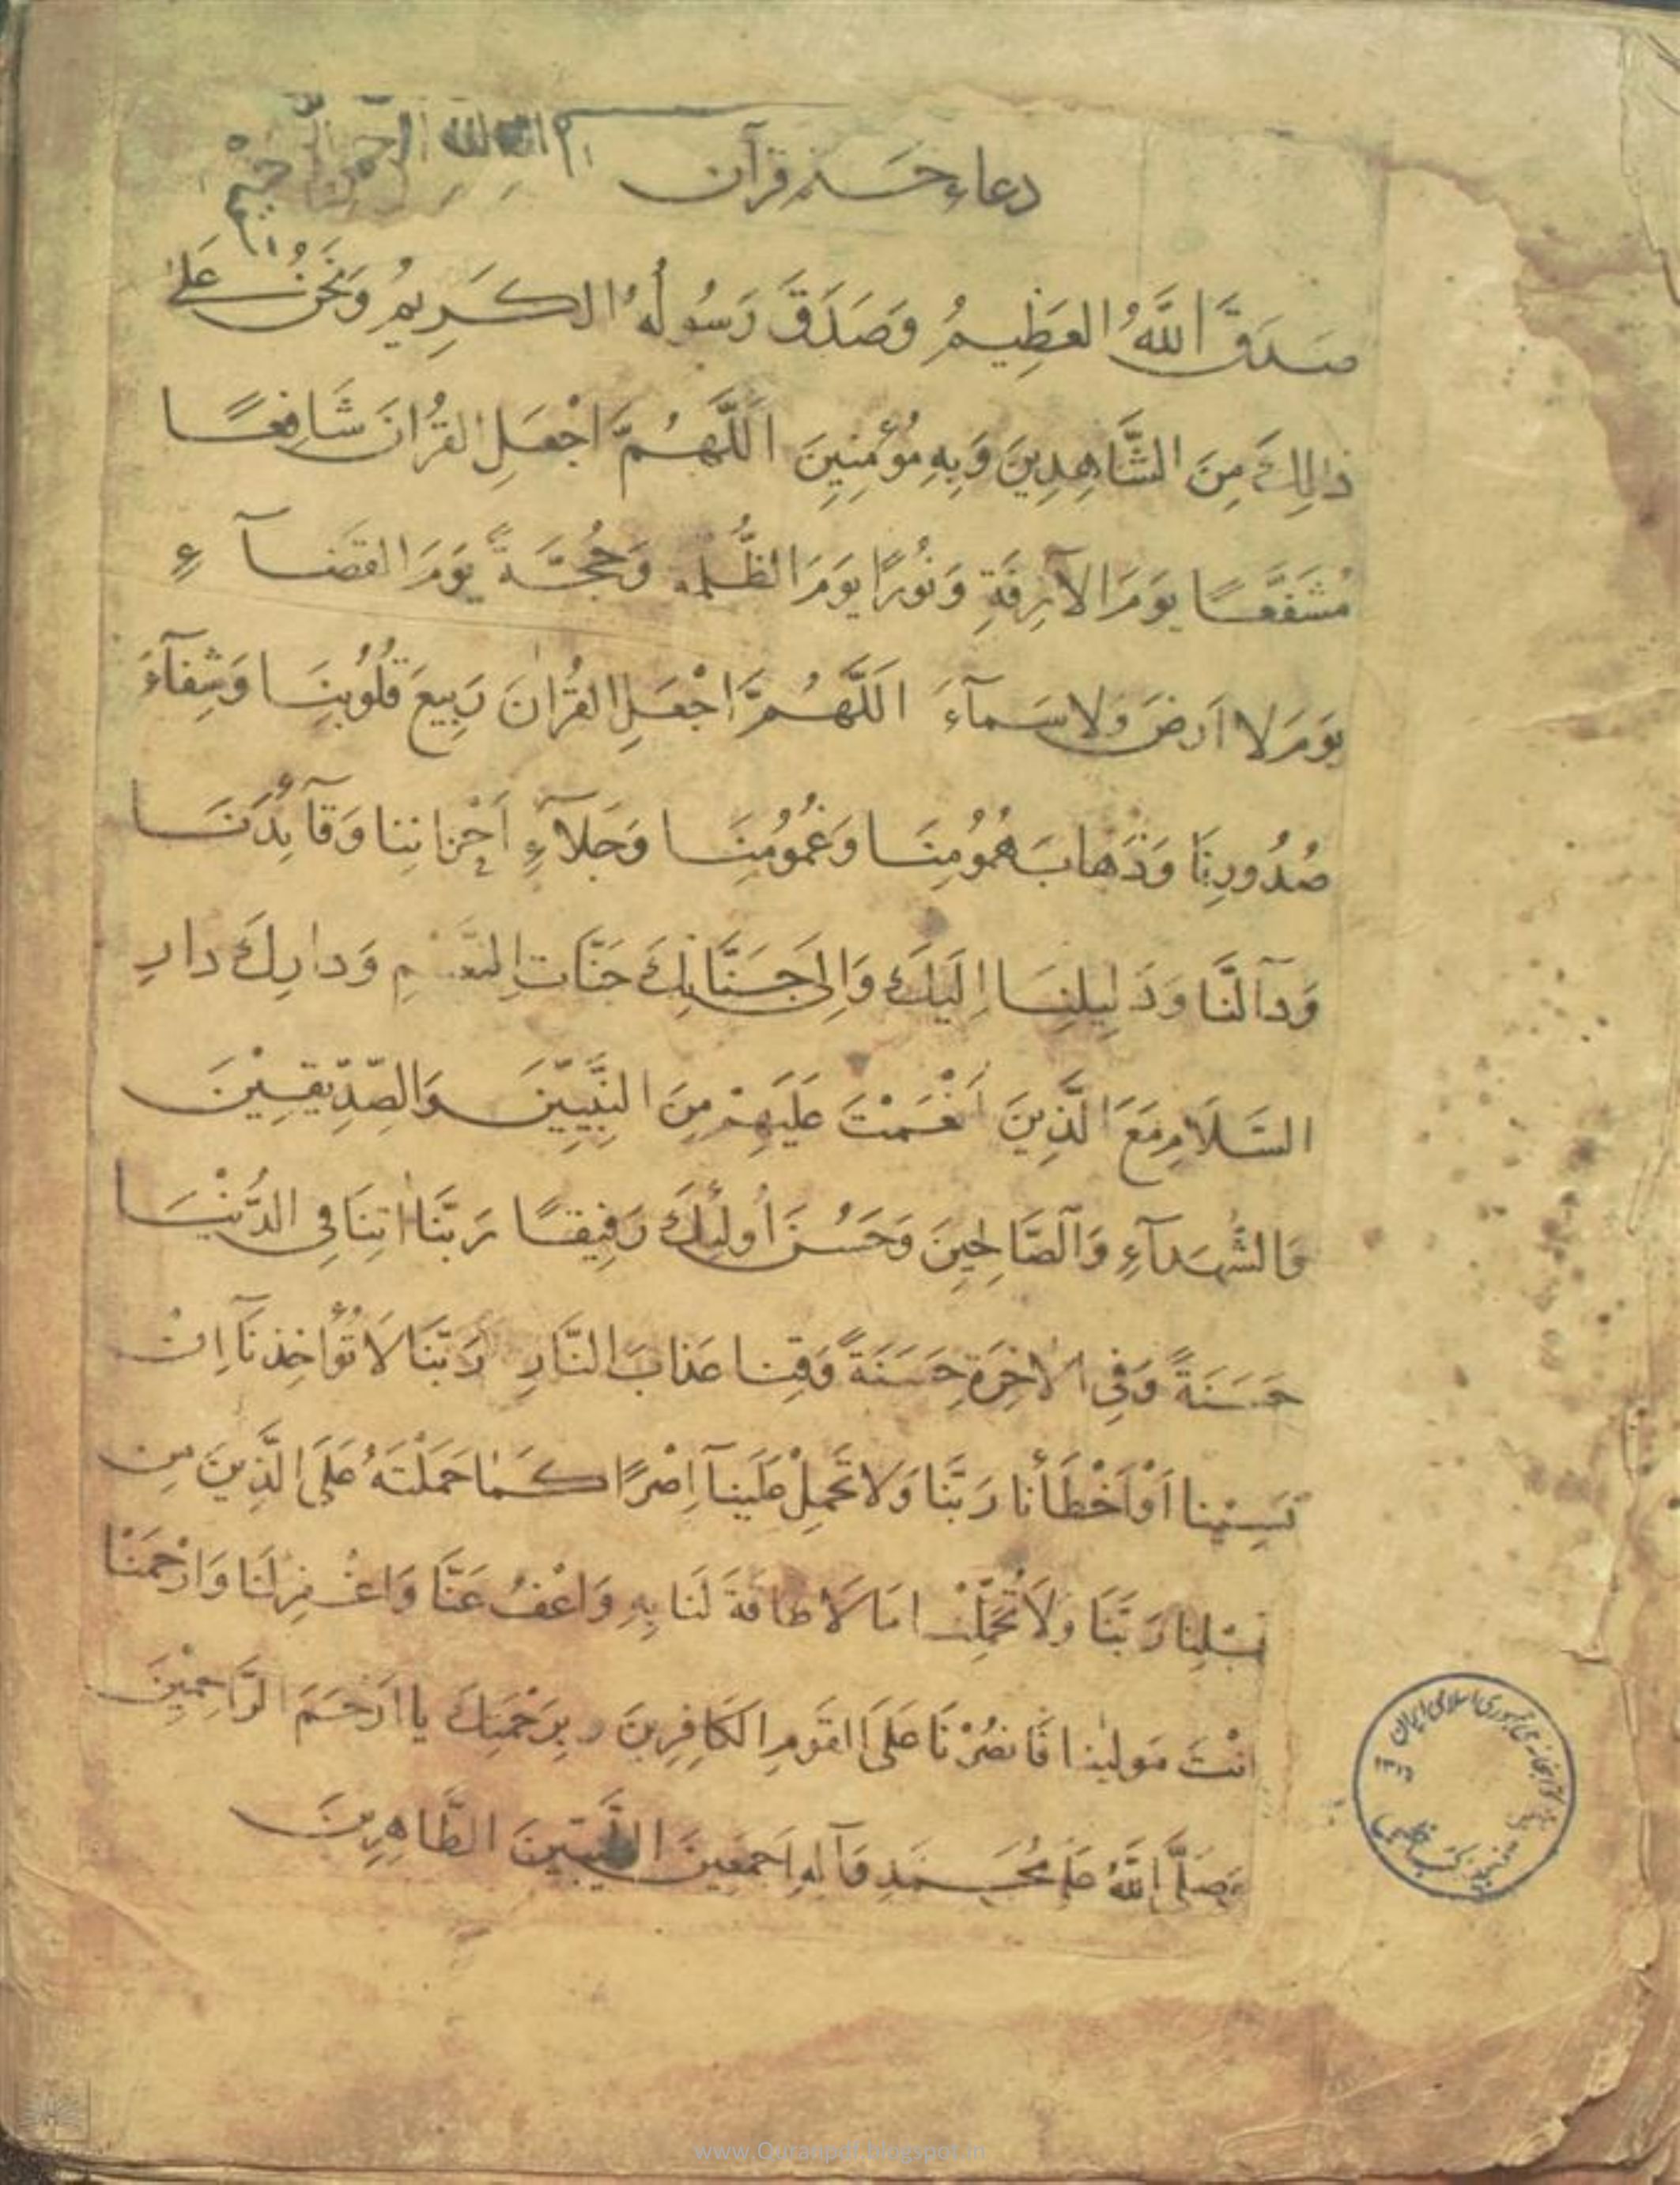 دعاء ختم قرآن بسم الله الرحمن الرحيم
صَدَقَ اللَّهُ العَظِيمُ وَصَدَقَ رَسُولُهُ الكَرِيمُ وَنَحْنُ عَلىٰ
ذالِكَ مِنَ الشَّاهِدِينَ وَبِهِ مُؤْمِنِينَ اَللَّهُمَّ اجْعَلِ القُرْانَ شَافِعًا
مُشَفَّعًا يَوْمَ الآزِفَةِ وَنُورًا يَوْمَ الظُّلمه وَحُجَّةً يَوْمَ القَضآءِ
يَوَمَ لا اَرضَ وَلا سَمآءَ اَللَّهُمَّ اجْعَلِ القُرْانَ رَبِيعَ قُلُوبِنَا وَشِفآءَ
صُدُورِنَا وَذَهابَ هُمُومِنَا وَغُمُومِنَا وَجَلآءِ اَحْزانِنا وَقآئِدَنَا
وَدآلَّنَا وَدَلِيلِنَا اِلَيكَ وَاِلى جَنَّاتِكَ جَنّاتِ النَّعيمِ وَدارِكَ دارِ
السَّلَامِ مَعَ الَّذِينَ اَنْعَمْتَ عَلَيهِمْ مِنَ النَّبِيِّينَ وَالصِّدِّيقِينَ
وَالشُّهَدآءِ وَالصَّالِحِينَ وَحَسُنَ أُولئِكَ رَفِيقًا رَبَّنا اتِنَا فِي الدُّنْيَا
حَسَنَةً وَفِي الاخِرَةِ حَسَنَةً وَقِنا عَذابَ النَّارِ رَبَّنَا لَا تُؤاخِذنَآ اِنْ
نَسِيْنا اَوْ اَخْطَأْنا رَبَّنَا وَلا تَحْمِلْ عَلَينآ اِصْرًا كَما حَمَلْتَهُ عَلَى الَّذِينَ مِن
قبْلِنا رَبَّنَا وَلَا تُحَمِّلْنا مَا لَا طاقَةَ لَنا بِهِ وَاعْفُ عَنَّا وَاغْفِرْلَنَا وَارْحَمْنَا
انْتَ مَولينا فَانصُرْنَا عَلَى القَومِ الكَافِرِينَ و بِرَحْمَتِكَ يا اَرْحَمَ الرَّاحِمِيْنَ
وَصَلَّى اللَّهُ عَلى مُحَمَدٍ وَآلِهِ اَجمَعينَ الطَّيّبينَ الطَّاهِرِينَ
www.Quranpdf.blogspot.in